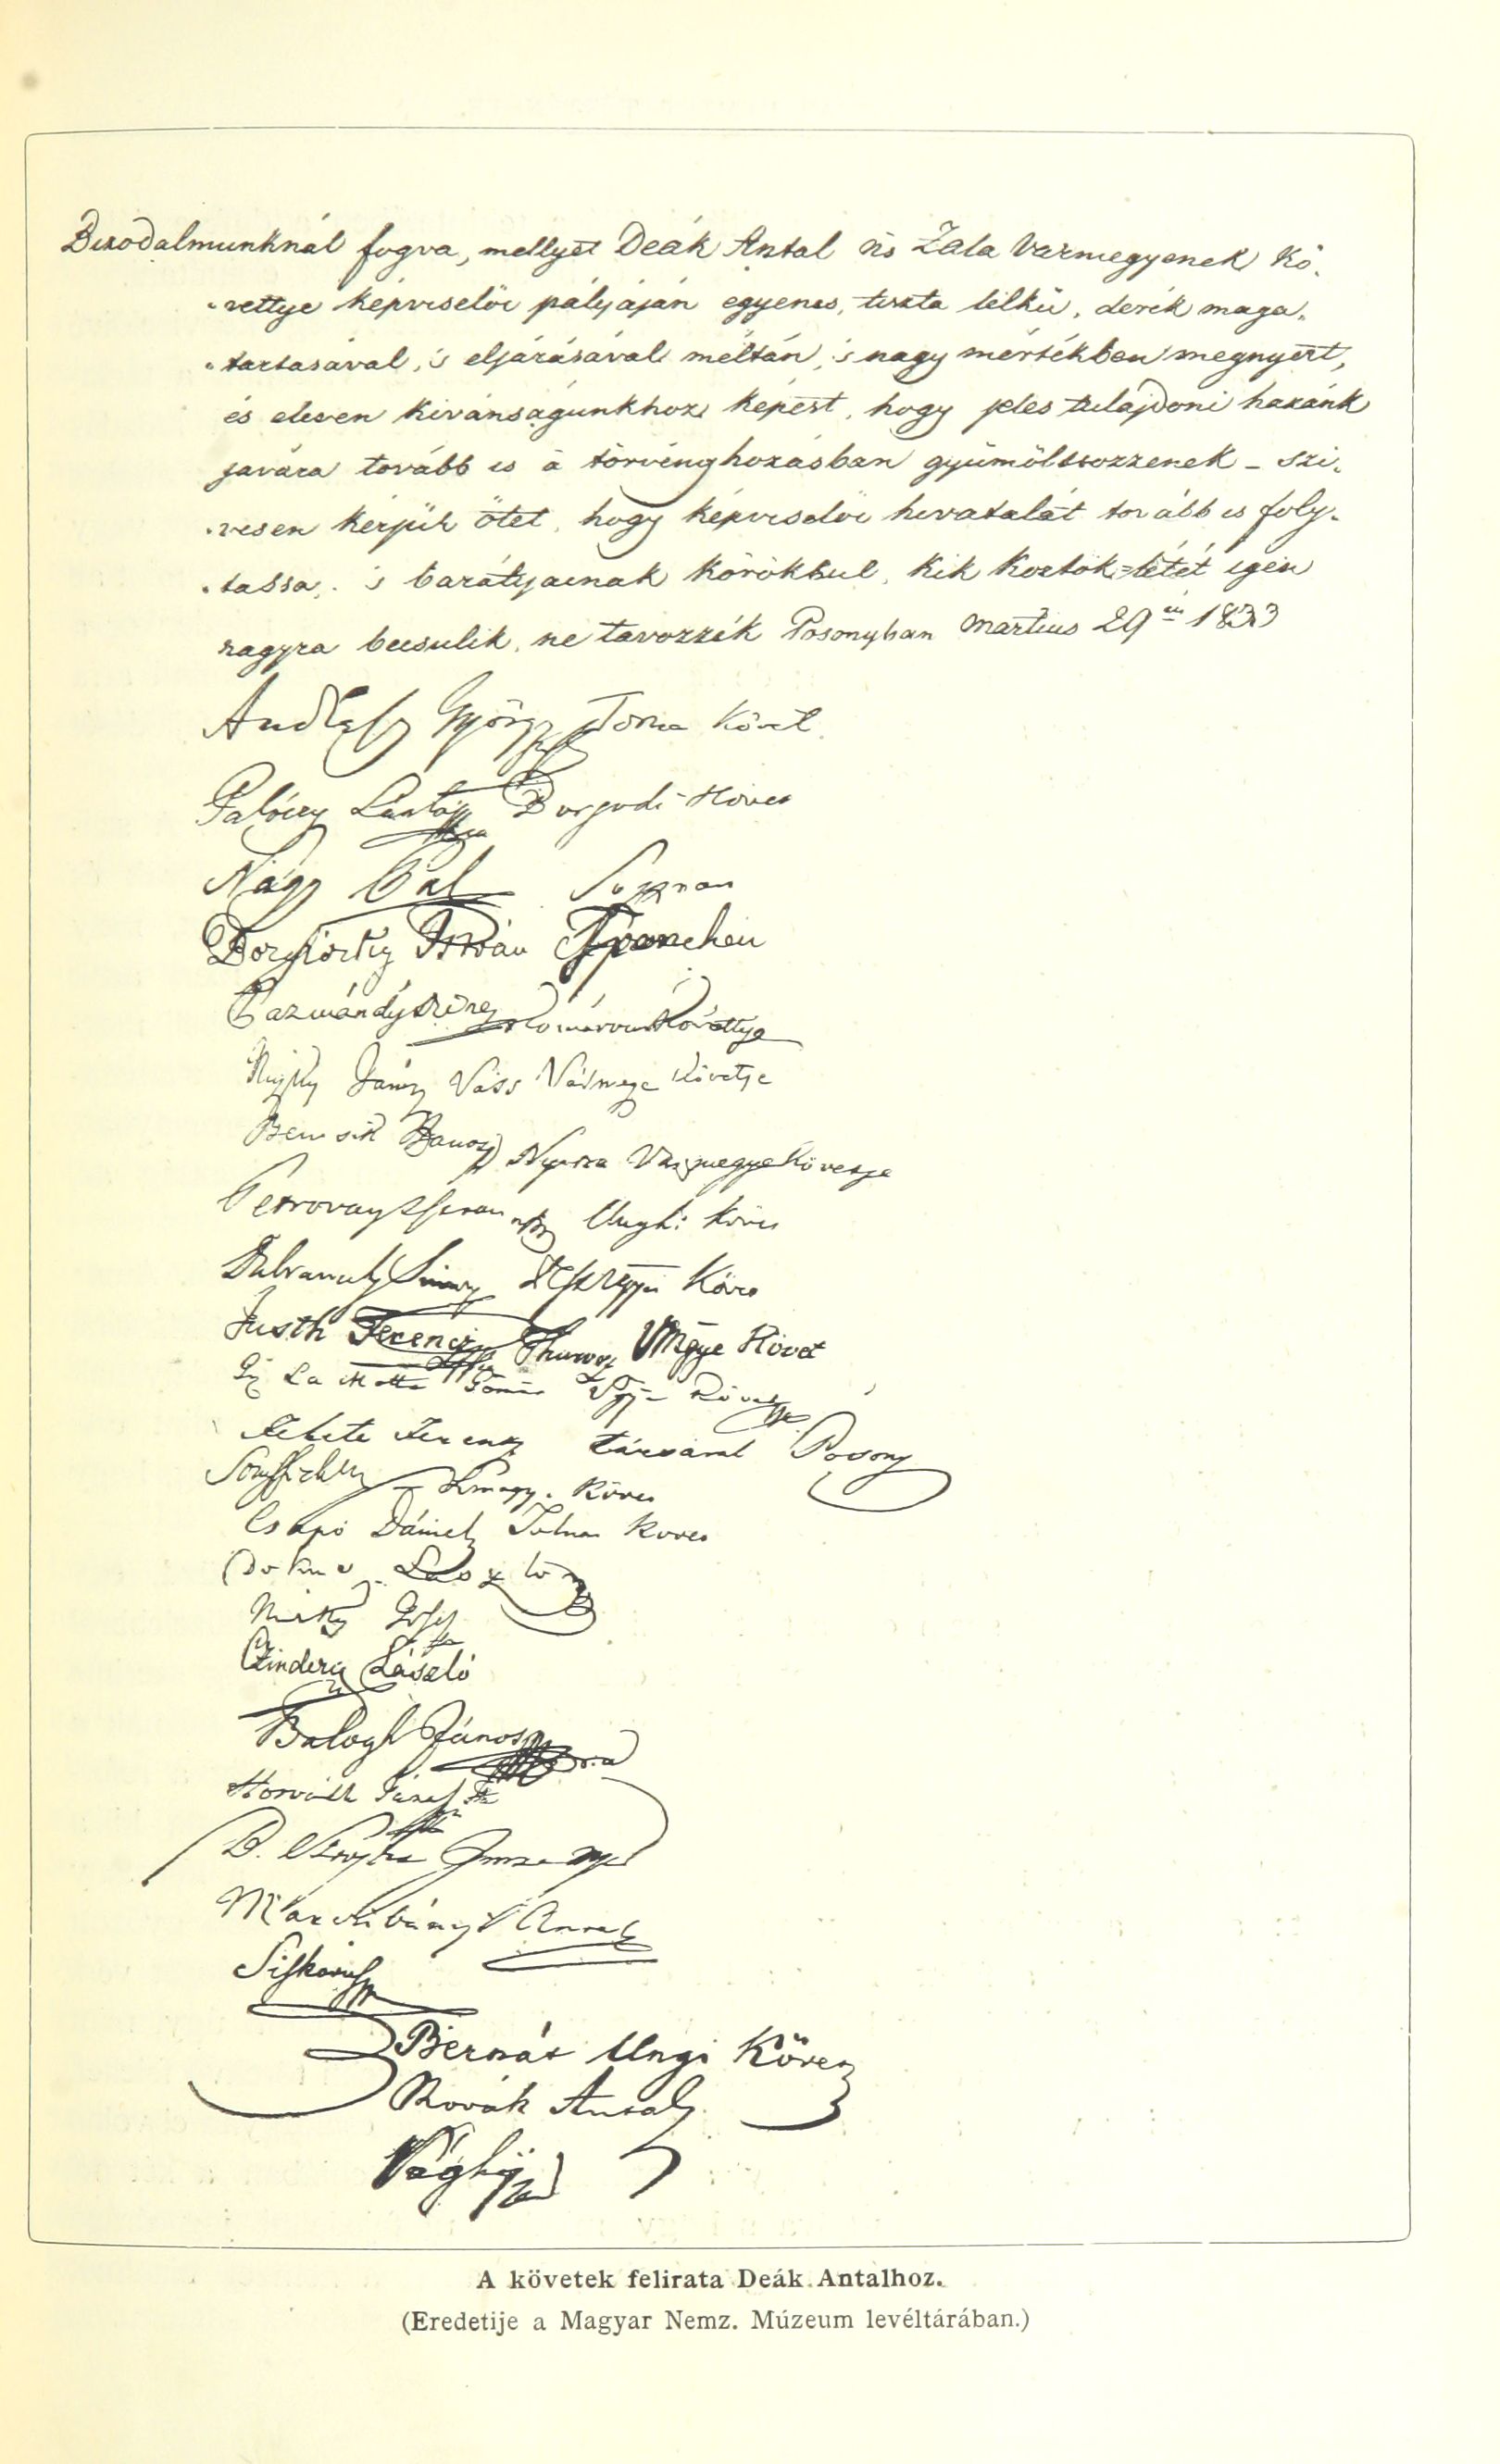 Bizodalmunknál fogva, mellyet Deák Antal Úr Zala Varmegyenek Kö-
-vettye képviselői pályáján egyenes, tiszta lelkü, derék maga-
-tartasával, 's eljárásával méltán, 's nagy mértékben megnyert,
és eleven kivánságunkhoz képest, hogy jeles tulajdoni hazánk
javára tovább is a törvényhozásban gyümöltsozzenek – szi-
-vesen kérjük őtet, hogy képviselői hivatalát tovább is foly-
-tassa, 's barátyainak körökbul, kik köztök=létét igen
nagyra betsulik, ne tavozzék Posonyban Martius 29én 1833
György Torna Követ
Palóczy László Borsodi Követ
Nagy Pál
István Trenchen
Pazmándy Komárom Követtye
János Vass Vármegye Követje
Bencsik János Nyitra Vármegye Követje
Petrovay Ferencz Követ
Követ
Justh Ferencz Thurocz VMgye Követ
La Motte Gömör
Fekete Ferencz Posony
Követ
Csapó Dániel Tolnai Követ
László
Czindery László
Balogh János
Horváth József
B.
Marczibányi Antal
Siskovich
Bernát Ungi Követ
Novák Antal
Vághy
A követek felirata Deák Antalhoz.
(Eredetije a Magyar Nemz. Múzeum levéltárában.)